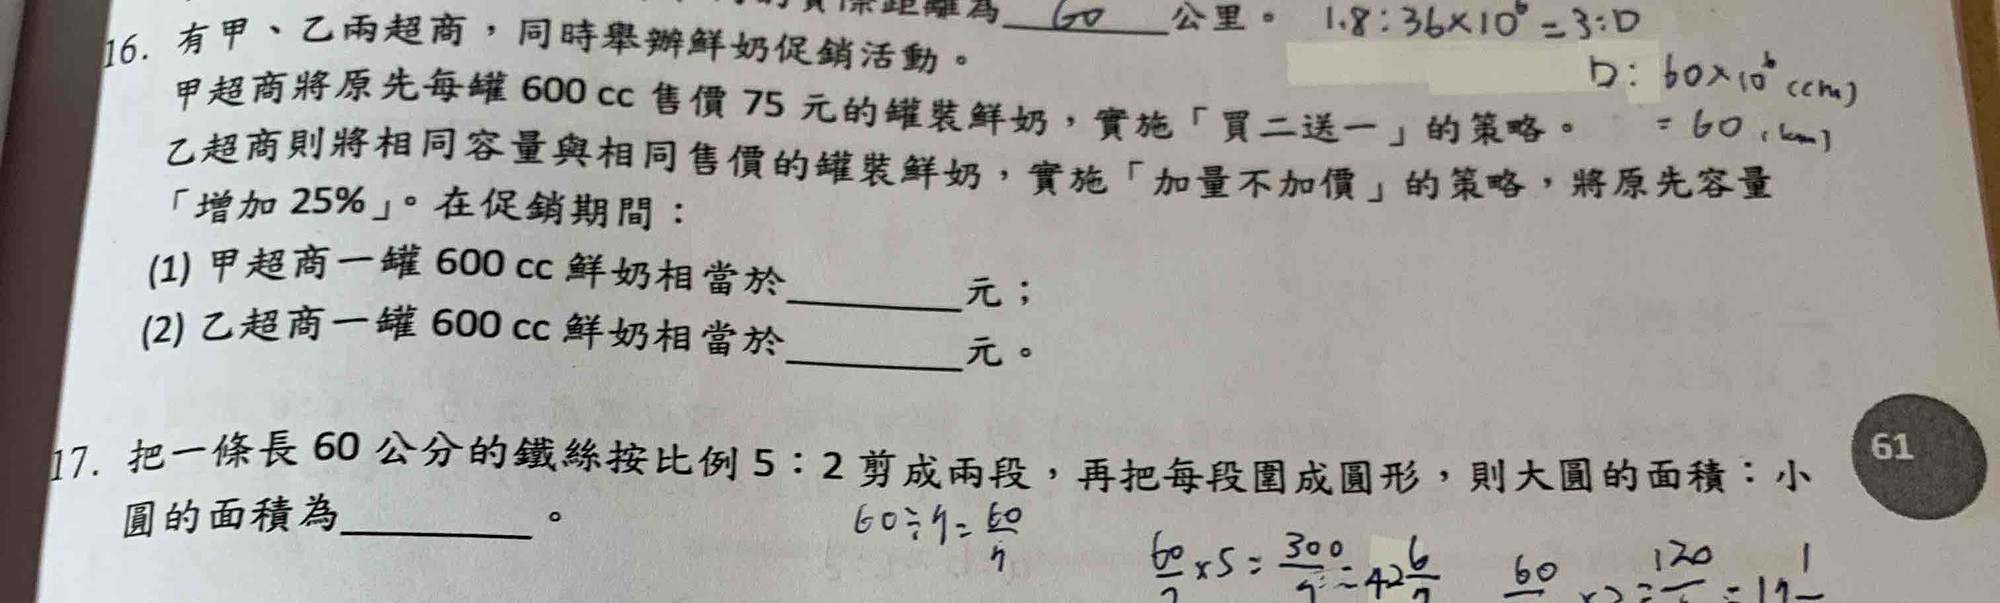 距離為 60 公里。 1.8:36×10⁶=3:D
16. 有甲、乙兩超商,同時舉辦鮮奶促銷活動。
D: 60×10⁶ (cm)
甲超商將原先每罐 600 cc 售價 75 元的罐裝鮮奶,實施「買二送一」的策略。
= 60 (km)
乙超商則將相同容量與相同售價的罐裝鮮奶,實施「加量不加價」的策略,將原先容量
「增加 25%」。在促銷期間:
(1) 甲超商一罐 600 cc 鮮奶相當於______元;
(2) 乙超商一罐 600 cc 鮮奶相當於______元。
61
17. 把一條長 60 公分的鐵絲按比例 5:2 剪成兩段,再把每段圍成圓形,則大圓的面積:小
圓的面積為______。
60÷7=60/7
60/7×5=300/7=42 6/7